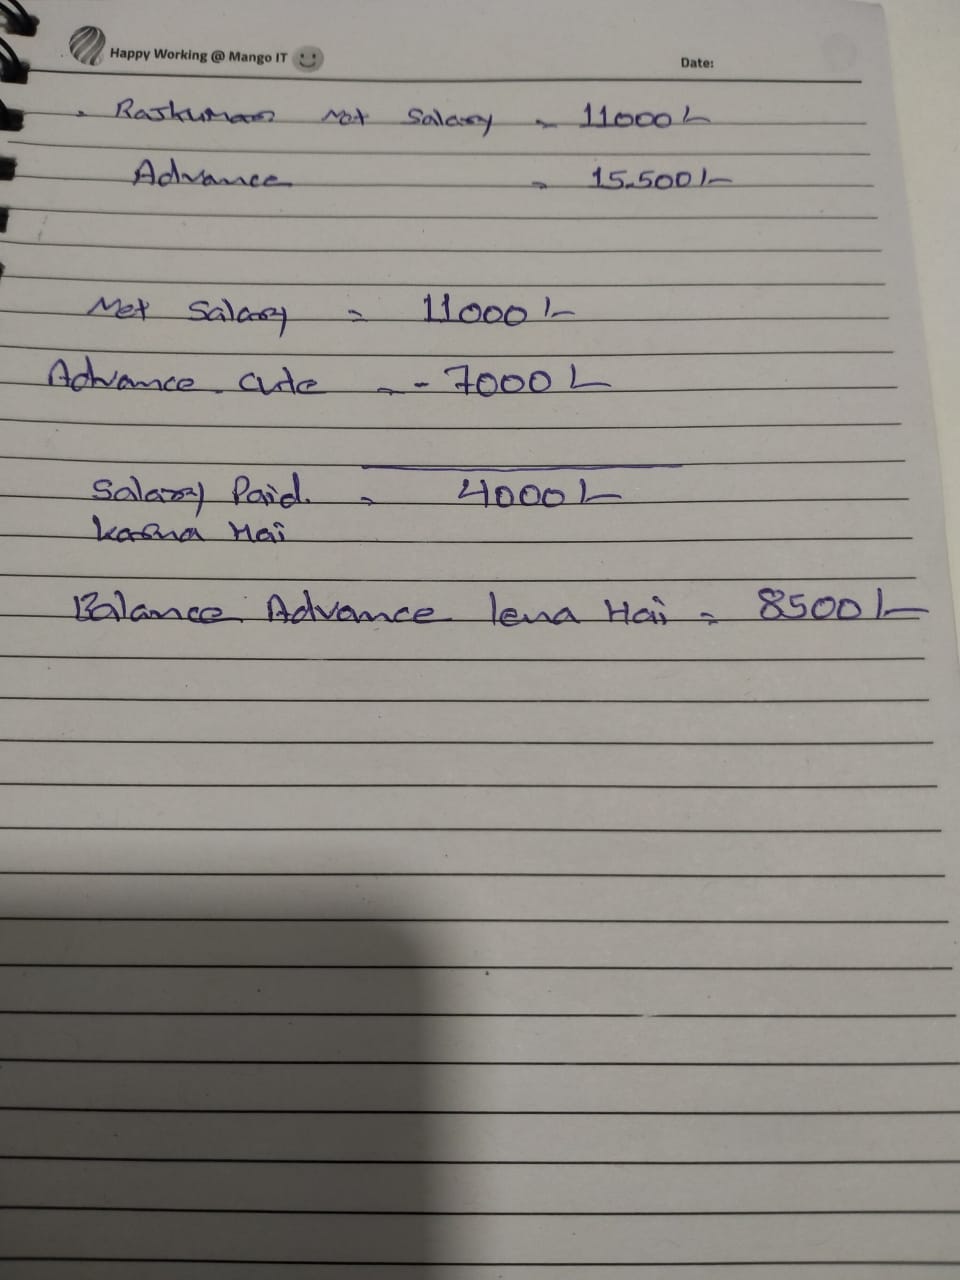 Happy Working @ Mango IT
Date:
Rajkumar Net Salary = 11000/-
Advance = 15,500/-
Net Salary = 11000/-
Advance cute = - 7000/-
Salary Paid. = 4000/-
karna Hai
Balance Advance lena Hai = 8500/-